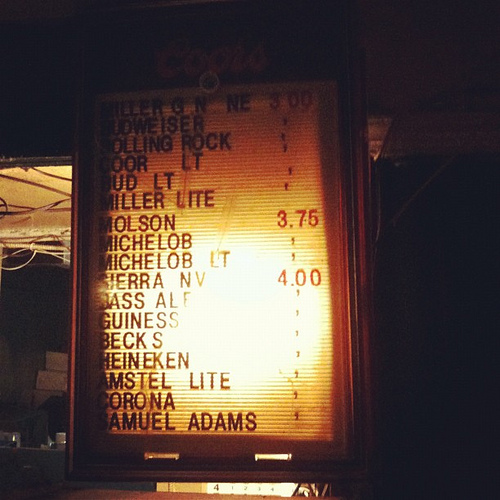 Coors
MILLER G N NE 3.00
BUDWEISER "
ROLLING ROCK "
COOR LT "
BUD LT "
MILLER LITE
MOLSON 3.75
MICHELOB "
MICHELOB LT "
SIERRA NV 4.00
BASS ALE "
GUINESS "
BECKS "
HEINEKEN "
AMSTEL LITE "
CORONA "
SAMUEL ADAMS "
4